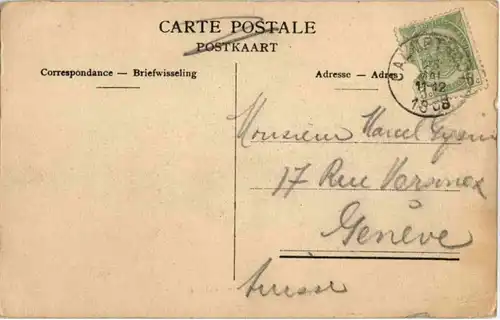 CARTE POSTALE
POSTKAART
Correspondance — Briefwisseling
Adresse — Adres
11-12
1908
Monsieur Marcel
17 Rue
Genève
Suisse